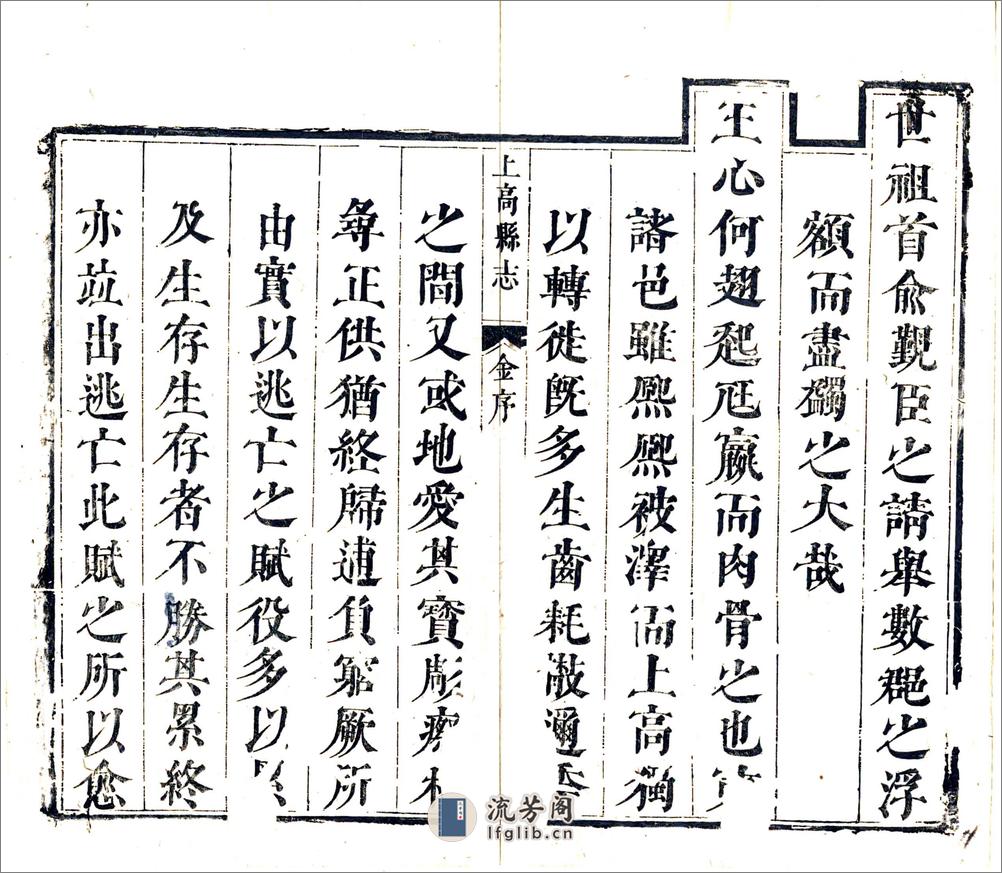 世祖首俞覲臣之請舉數郡之浮
額而盡蠲之大哉
王心何翅起尫羸而肉骨之也
諸邑雖熈熈被澤而上高獨
以轉徙旣多生齒耗敝邇
上高縣志 金序
之間又或地愛其寶彫瘵
尋正供猶終歸逋負窮厥所
由實以逃亡之賦役多以
及生存生存者不勝其累終
亦竝出逃亡此賦之所以愈
流芳阁
lfglib.cn